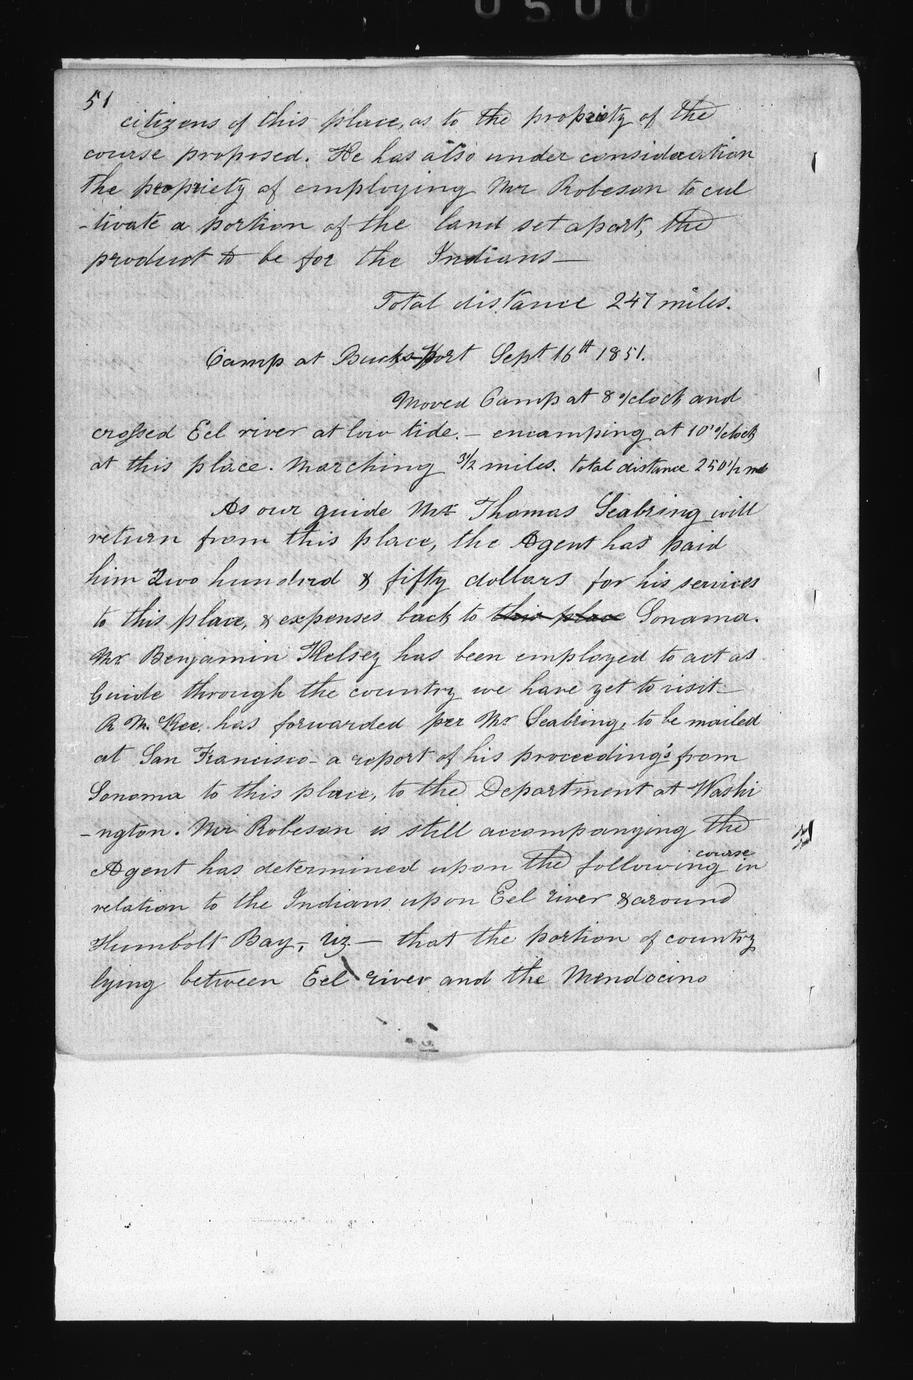 0500
51
citizens of this place, as to the propriety of the
course proposed. He has also under consideration
the propriety of employing Mr Robeson to cul
-tivate a portion of the land set apart, the
product to be for the Indians—
Total distance 247 miles.
Camp at Bucksport Sept 16th 1851.
Moved Camp at 8 o'clock and
crossed Eel river at low tide.— encamping at 10 o'clock
at this place. Marching 3½ miles. Total distance 250½ mls
As our guide Mr Thomas Seabring will
return from this place, the Agent has paid
him Two hundred & fifty dollars for his services
to this place, & expenses back to this place Sonoma.
Mr Benjamin Kelsey has been employed to act as
Guide through the country we have yet to visit—
R McKee, has forwarded per Mr Seabring, to be mailed
at San Francisco— a report of his proceedings from
Sonoma to this place, to the Department at Washi
-ngton. Mr Robeson is still accompanying the
Agent has determined upon the following course in
relation to the Indians upon Eel river & around
Humbolt Bay, viz— that the portion of country
lying between Eel river and the Mendocino